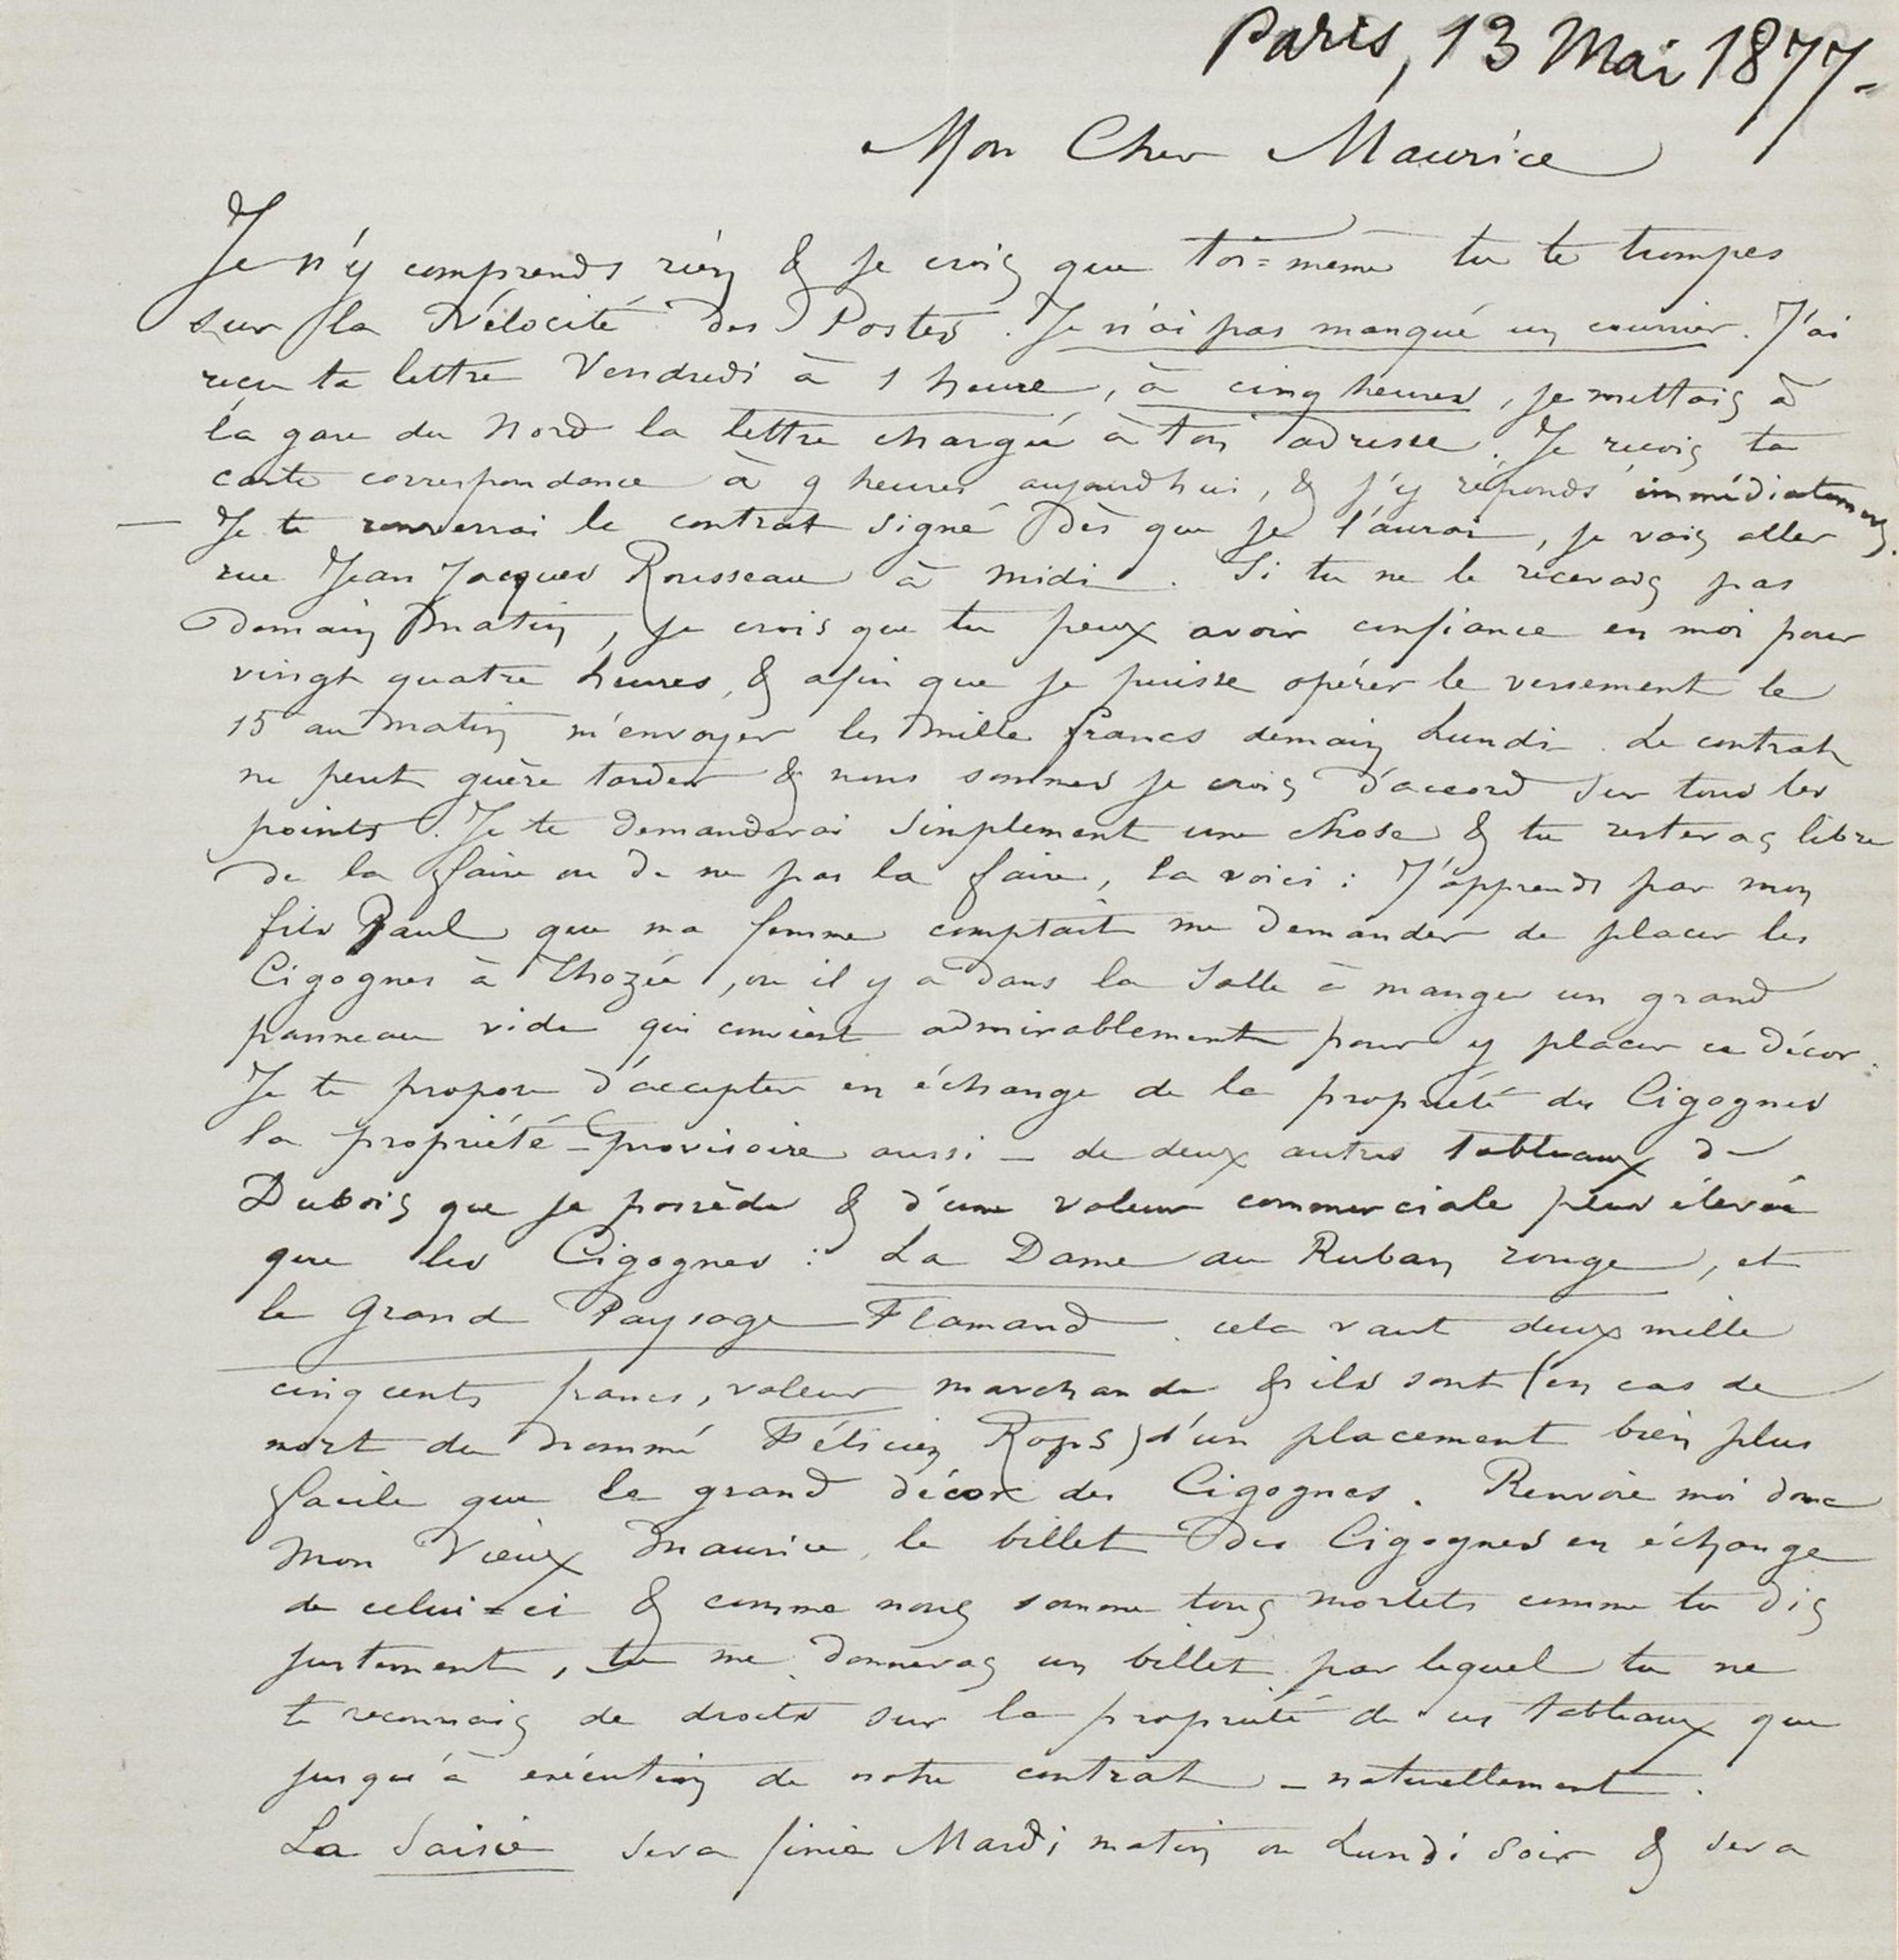 Paris, 13 Mai 1877-
Mon Cher Maurice
Je n'y comprends rien & je crois que toi=même tu te trompes
sur la Vélocité des Postes. Je n'ai pas manqué un courrier. J'ai
reçu ta lettre Vendredi à 1 heure, à cinq heures, je mettais à
la gare du Nord la lettre chargée à ton adresse. Je reçois ta
carte correspondance à 9 heures aujourdhui, & j'y réponds immédiatement.
— Je te renverrai le contrat signé dès que je l'aurai, je vais aller
rue Jean Jacques Rousseau à midi. Si tu ne le recevais pas
demain matin, je crois que tu peux avoir confiance en moi pour
vingt quatre heures, & afin que je puisse opérer le versement le
15 au matin m'envoyer les mille francs demain Lundi. Le contrat
ne peut guère tarder & nous sommes je crois d'accord sur tous les
points. Je te demanderai simplement une chose & tu resteras libre
de la faire ou de ne pas la faire, la voici : J'apprends par mon
fils Paul que ma femme comptait me demander de placer les
Cigognes à Thozée, ou il y a dans la Salle à manger un grand
panneau vide qui convient admirablement pour y placer ce décor.
Je te propose d'accepter en échange de la propriété des Cigognes
la propriété – provisoire aussi – de deux autres tableaux de
Dubois que je possède & d'une valeur commerciale plus élevée
que les Cigognes : La Dame au Ruban rouge, et
le Grand Paysage Flamand. cela vaut deux mille
cinq cents francs, valeur marchande & ils sont (en cas de
mort du nommé Félicien Rops) d'un placement bien plus
facile que le grand décor des Cigognes. Renvoie moi donc
mon Vieux Maurice, le billet des Cigognes en échange
de celui=ci & comme nous somme tous mortels comme tu dis
justement, tu me donneras un billet par lequel tu ne
te reconnais de droits sur la propriété de ces tableaux que
jusqu'à exécution de notre contrat – naturellement.
La Saisie sera finie Mardi matin ou Lundi soir & sera